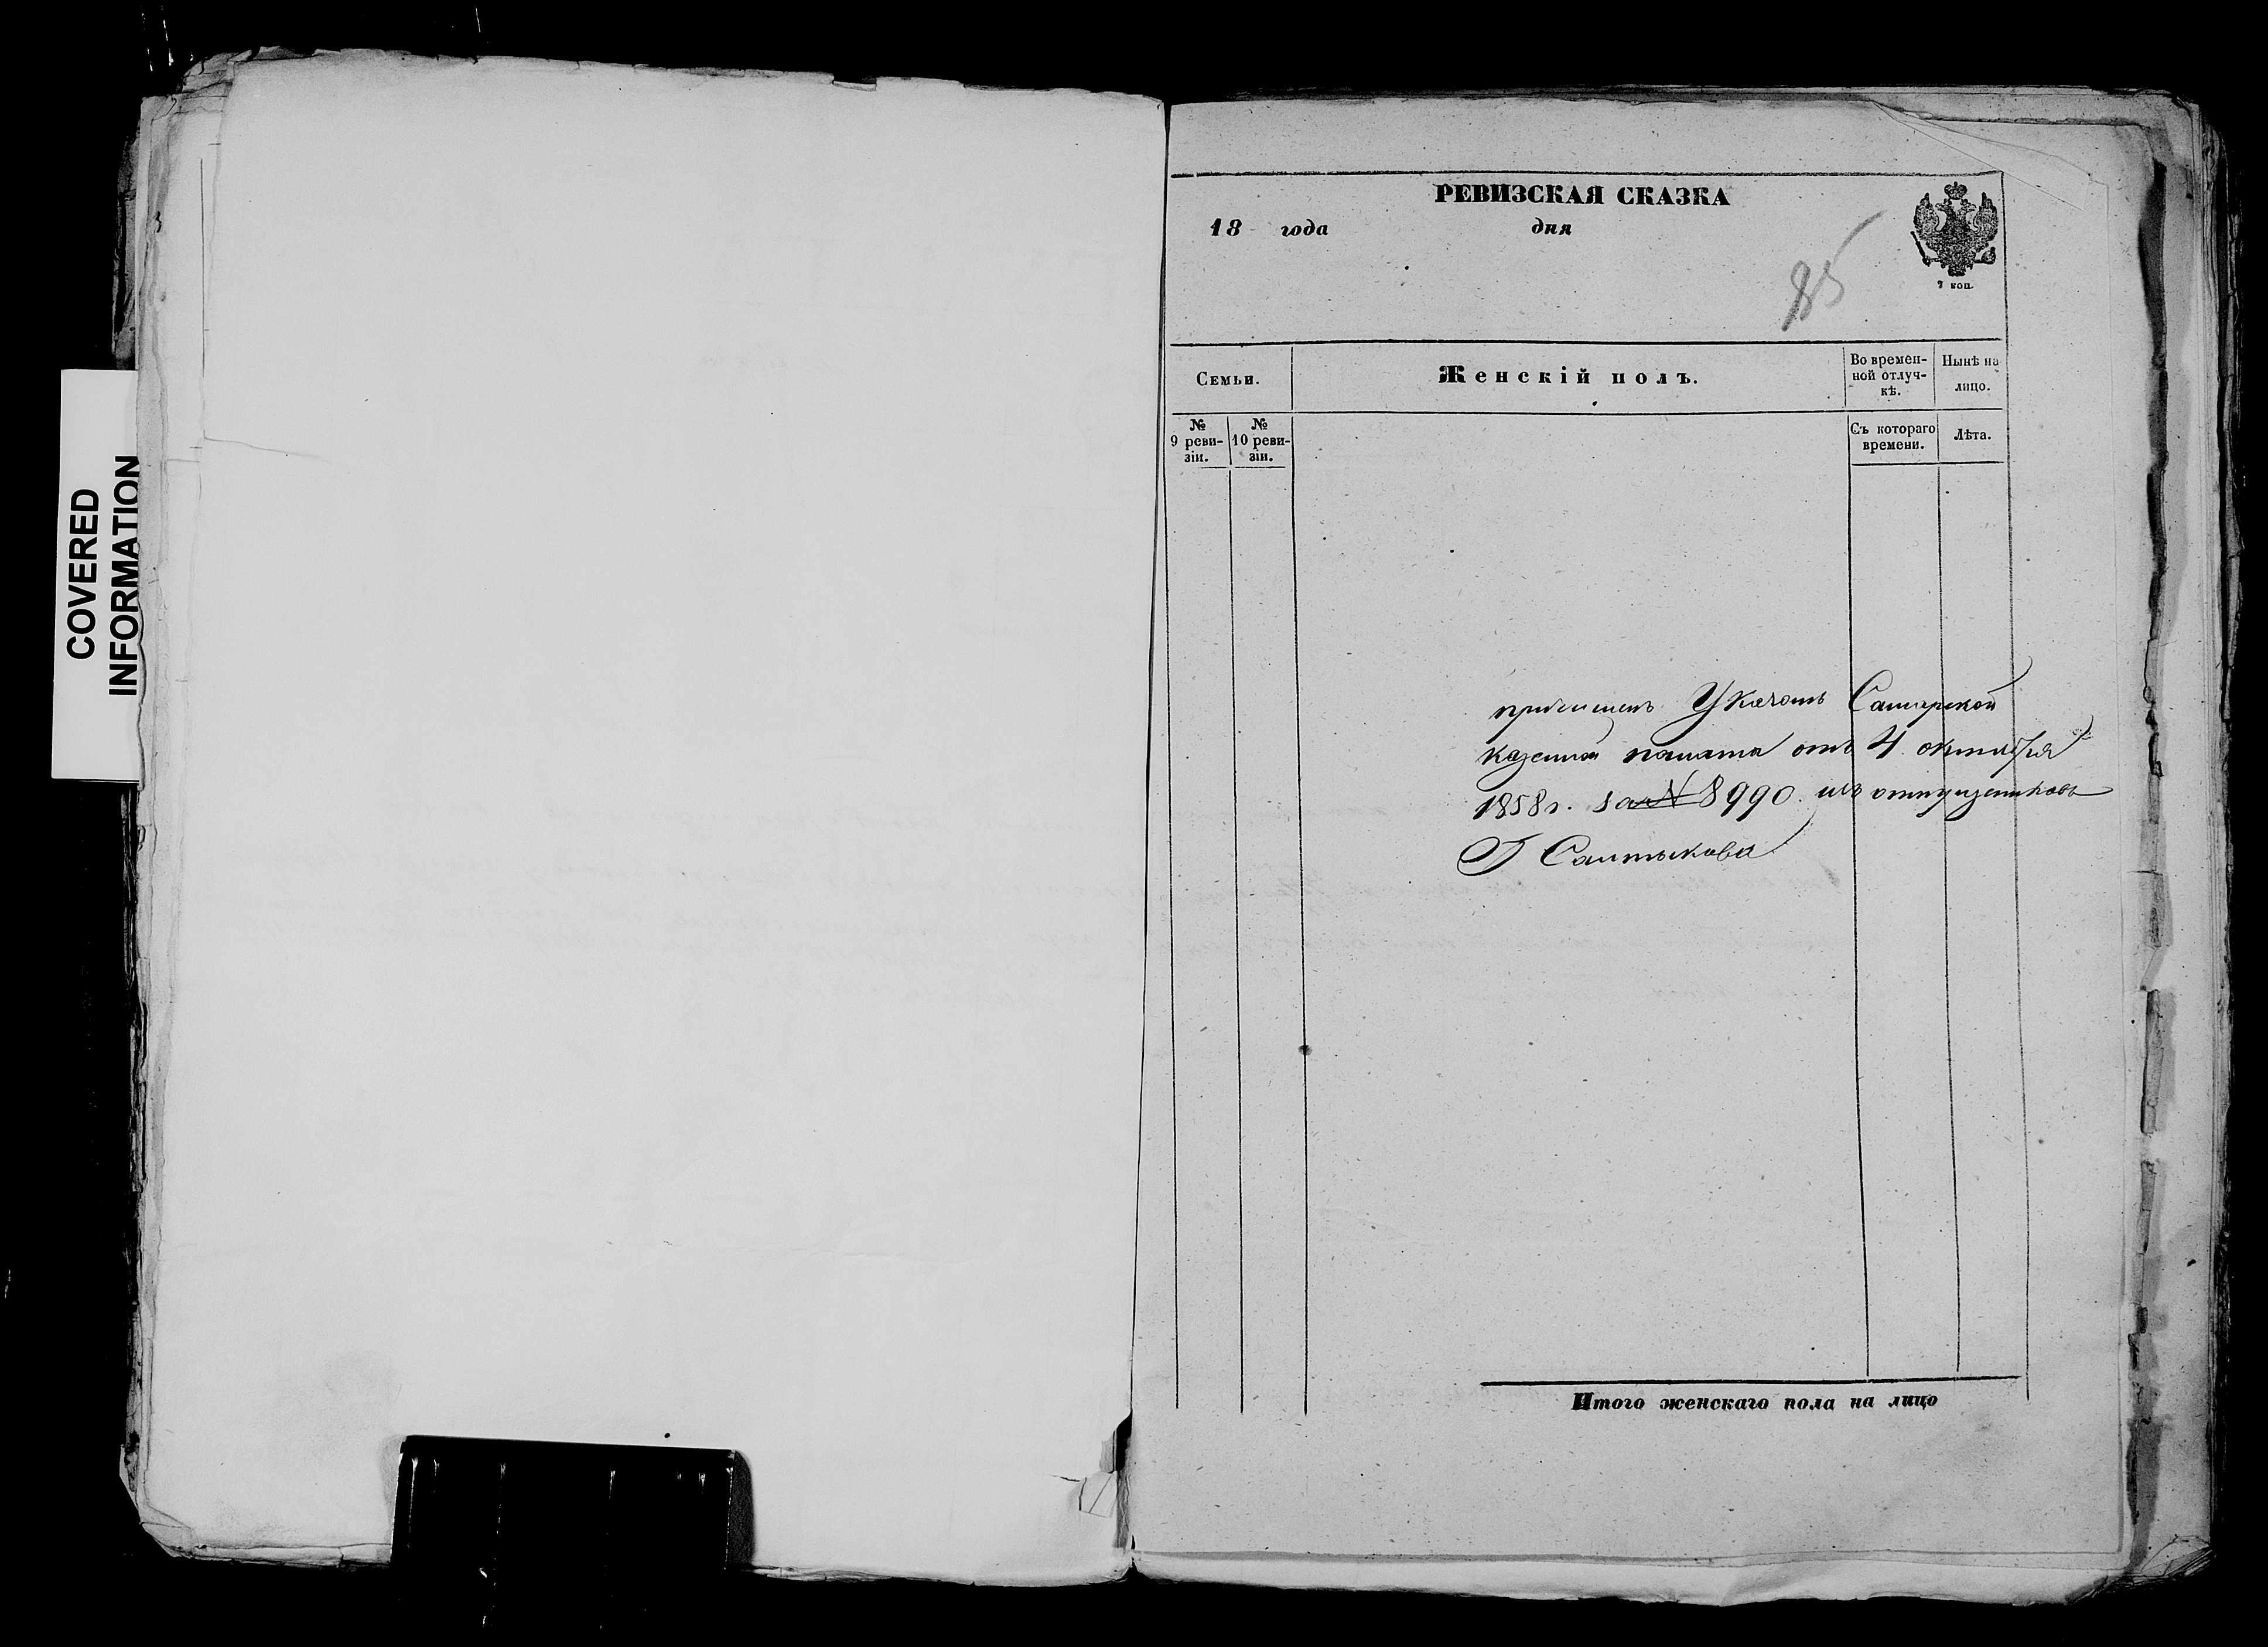 COVERED
INFORMATION
РЕВИЗСКАЯ СКАЗКА
18 года дня
85
7 коп.
Семьи.
Женскій полъ.
Во времен-
ной отлуч-
кѣ.
Нынѣ на
лицо.
№
9 реви-
зіи.
№
10 реви-
зіи.
Съ котораго
времени.
Лѣта.
причисленъ Указомъ Самарской
казенной палаты отъ 4 октября
1858 г. за № 8990. изъ отпущенниковъ
Г Салтыкова
Итого женскаго пола на лицо